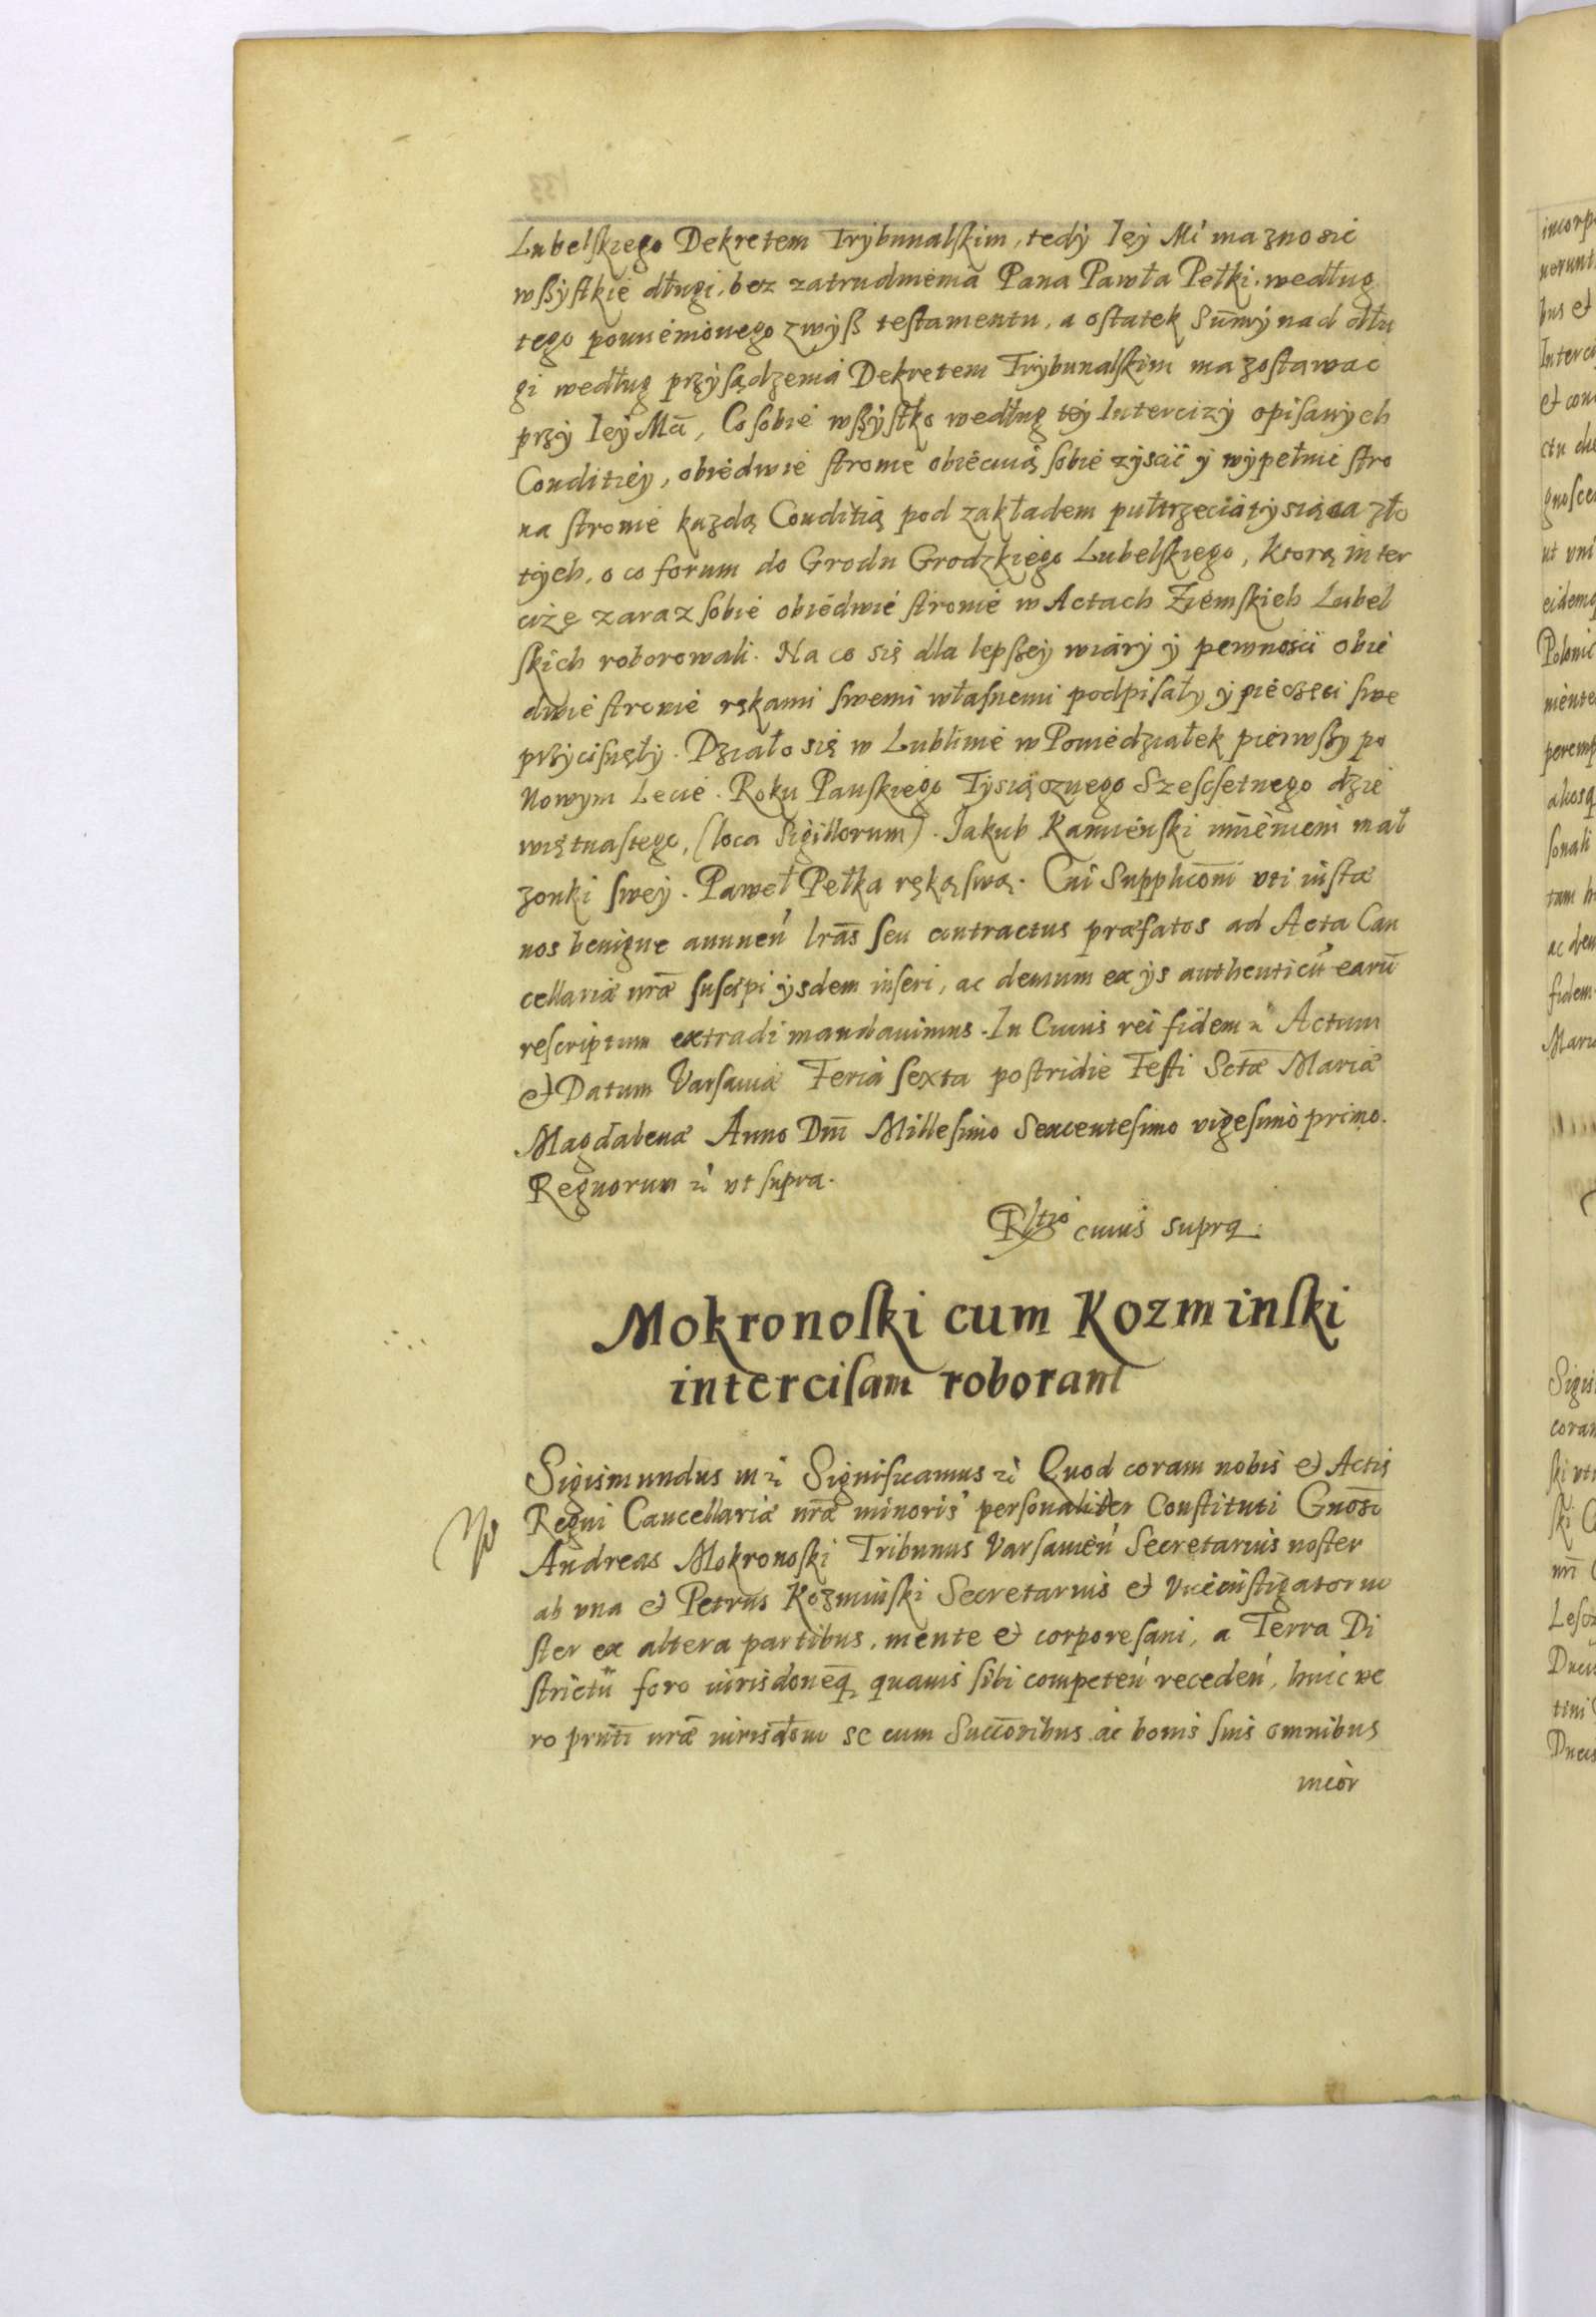 Lubelſkiego Dekretem Trybunalſkim, tedÿ Ieÿ Mć ma znosić
wßÿſtkie długi, bez zatrudnienia Pana Pawła Pełki, według
tego pomienionego zwÿß teſtamentu, a oſtatek Sum̄ÿ nad dłu
gi według przÿſądzenia Dekretem Trÿbunalſkim ma zoſtawac
przÿ Ieÿ Mći, Co ſobie wßÿſtko według teÿ Intercizÿ opiſanÿch
Conditieÿ, obiedwie ſtronie obiecuią ſobie zÿscić ÿ wÿpełnic ſtro
na ſtronie kazdą Conditią pod zakładem pułtrzecia tÿsiąca zło
tÿch, o co forum do Grodu Grodzkiego Lubelſkiego, Ktorą inter
cizę zaraz ſobie obiedwie ſtronie w Actach Ziemſkich Lubel
ſkich roborowali. Na co się dla lepßeÿ wiarÿ ÿ pewnosci obie
dwie ſtronie rękami ſwemi własnemi podpiſały ÿ pieczęci ſwe
przÿcisnęłÿ. Działo się w Lublinie w Poniedziałek pierwßy po
Nowym Lecie. Roku Panſkiego Tÿsiącznego Szeſcſetnego dzie
więtnaſtego, (loca Sigillorum). Jakub Kamienſki imieniem mał
zonki ſweÿ. Paweł Pełka ręką ſwą. Cui Suppliconi uti iuſtæ
nos benigne annueń lrās ſeu contractus præfatos ad Acta Can
cellariæ nr̄æ ſuſcipi ÿsdem inſeri, ac demum ex ÿs authenticū earū
reſcriptum extradi mandauimus. In Cuius rei fidem ꝛ Actum
et Datum Varſauiæ Feria ſexta poſtridie Feſti Sctæ Mariæ
Magdalenæ Anno Dnī Milleſimo Sexcenteſimo vigeſimo primo.
Regnorum ꝛ ut ſupra.
Rltio cuius supra
Mokronoſki cum Kozminſki
interciſam roborant
Sigismundus III ꝛ Significamus ꝛ Quod coram nobis et Actis
Regni Cancellariæ nr̄æ minoris perſonaliter Conſtituti Gnoſi
Andreas Mokronoſki Tribunus Varſauień Secretarius noſter
ab una et Petrus Kozminſki Secretarius et Viceinſtigator no
ſter ex altera partibus, mente et corpore ſani, a Terra Di
ſtrictu foro iurisdoneq, quauis ſibi competeń recedeń, huic ve
ro pnti nr̄æ iurisdoni se cum Succoribus ac bonis ſuis omnibus
incor